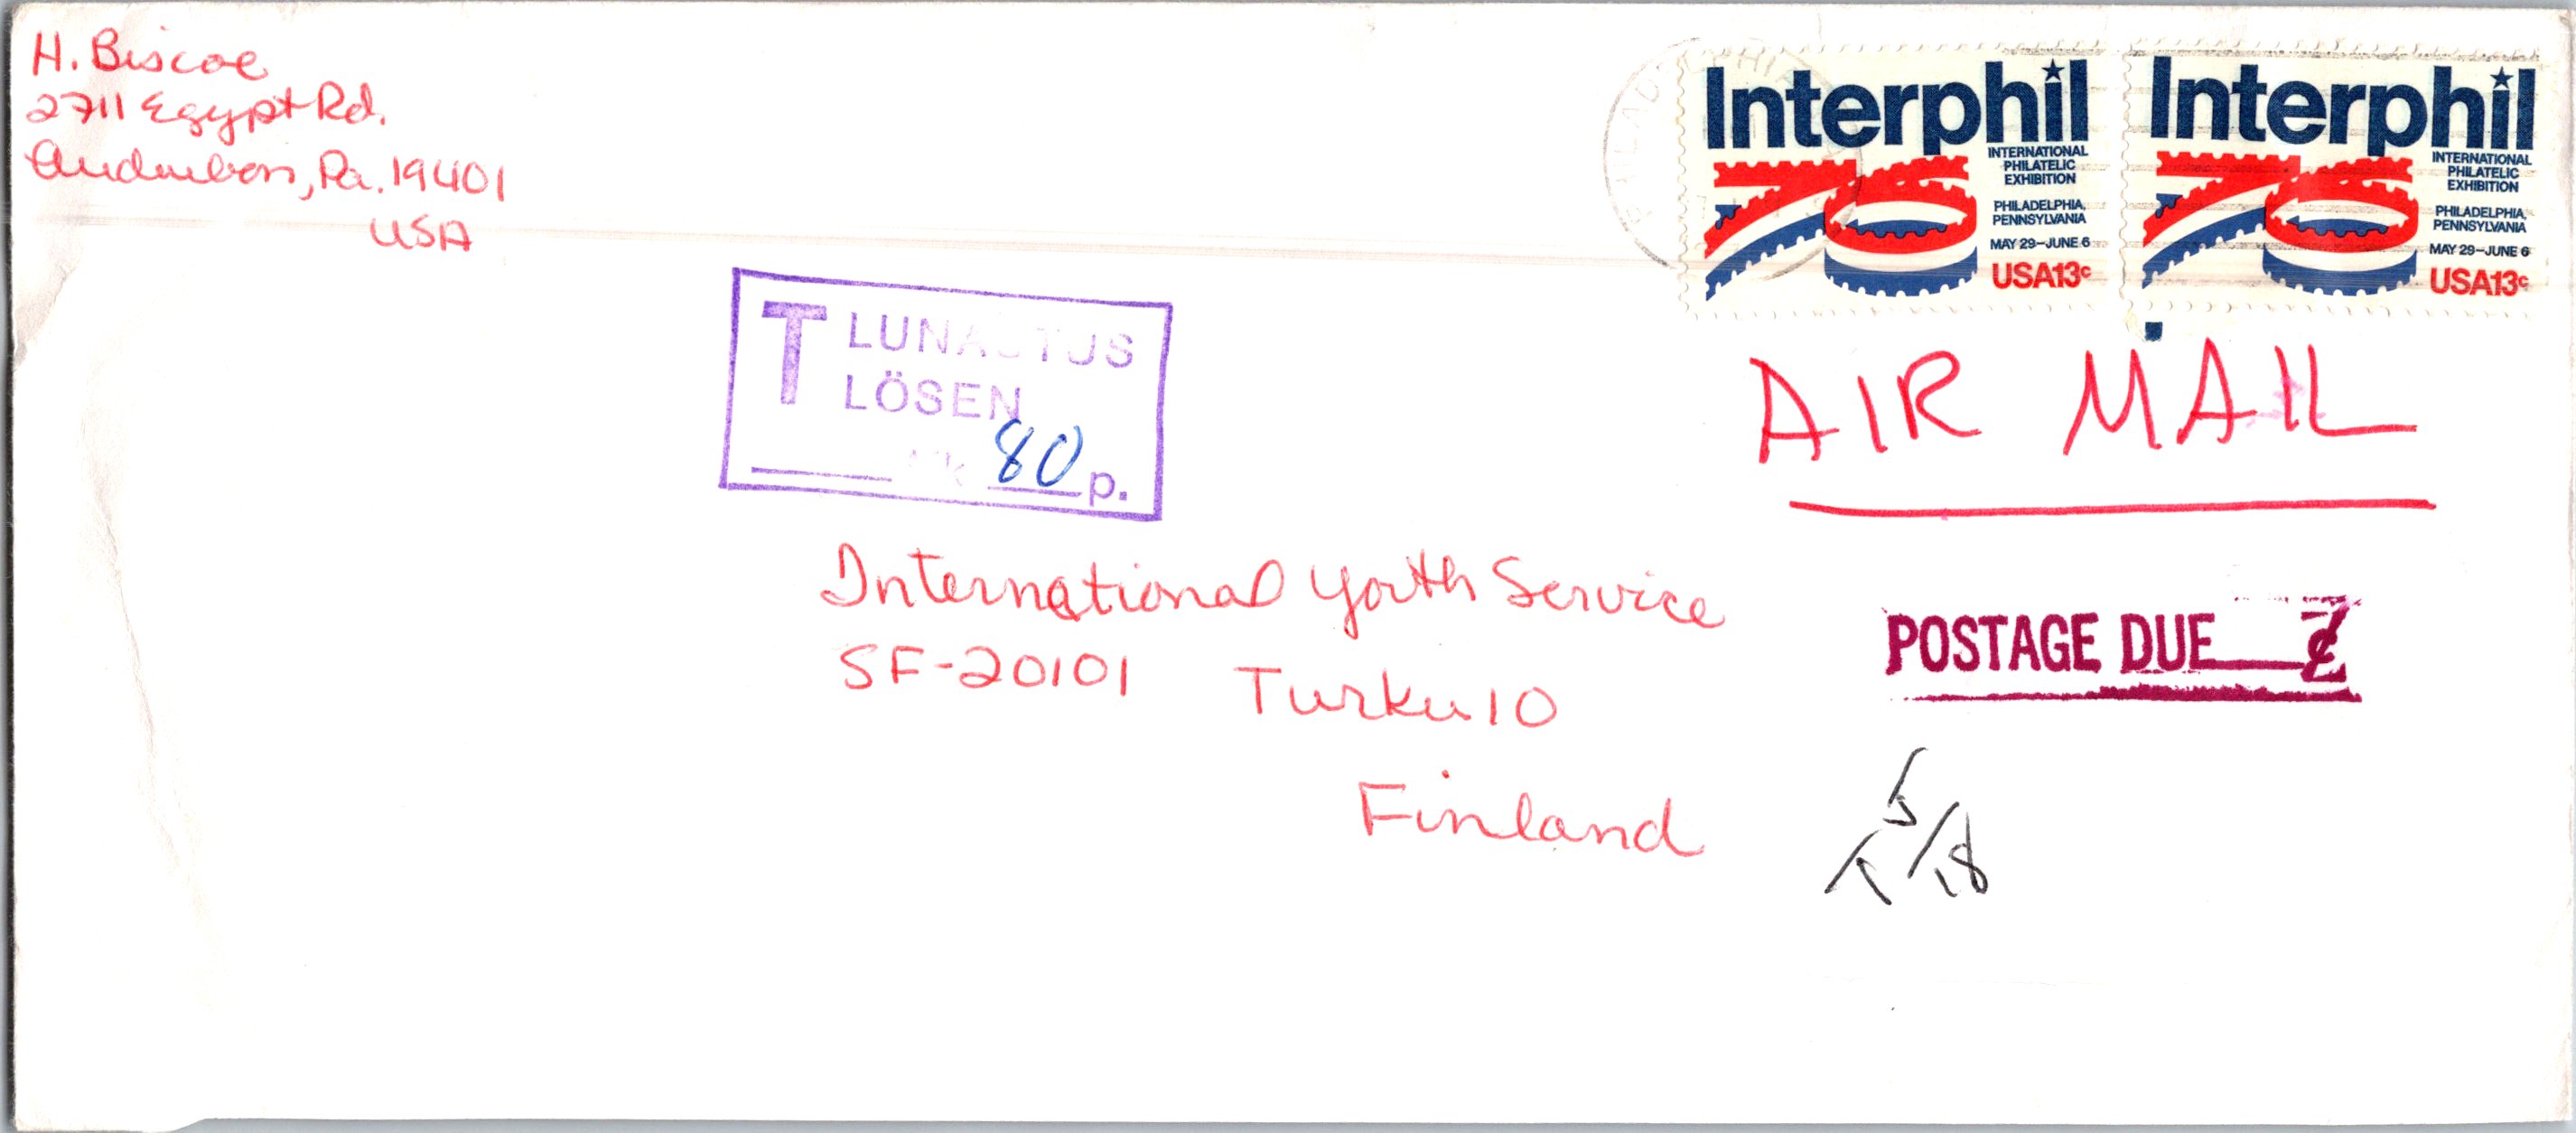 H. Biscoe
2711 Egypt Rd.
Audubon, Pa. 19401
USA
PHILADELPHIA
Interphil
76
INTERNATIONAL
PHILATELIC
EXHIBITION
PHILADELPHIA,
PENNSYLVANIA
MAY 29–JUNE 6
USA13c
Interphil
76
INTERNATIONAL
PHILATELIC
EXHIBITION
PHILADELPHIA,
PENNSYLVANIA
MAY 29–JUNE 6
USA13c
T LUNASTUS
LÖSEN
mk 80 p.
AIR MAIL
International Youth Service
SF-20101 Turku 10
Finland
POSTAGE DUE ¢
T 5/18